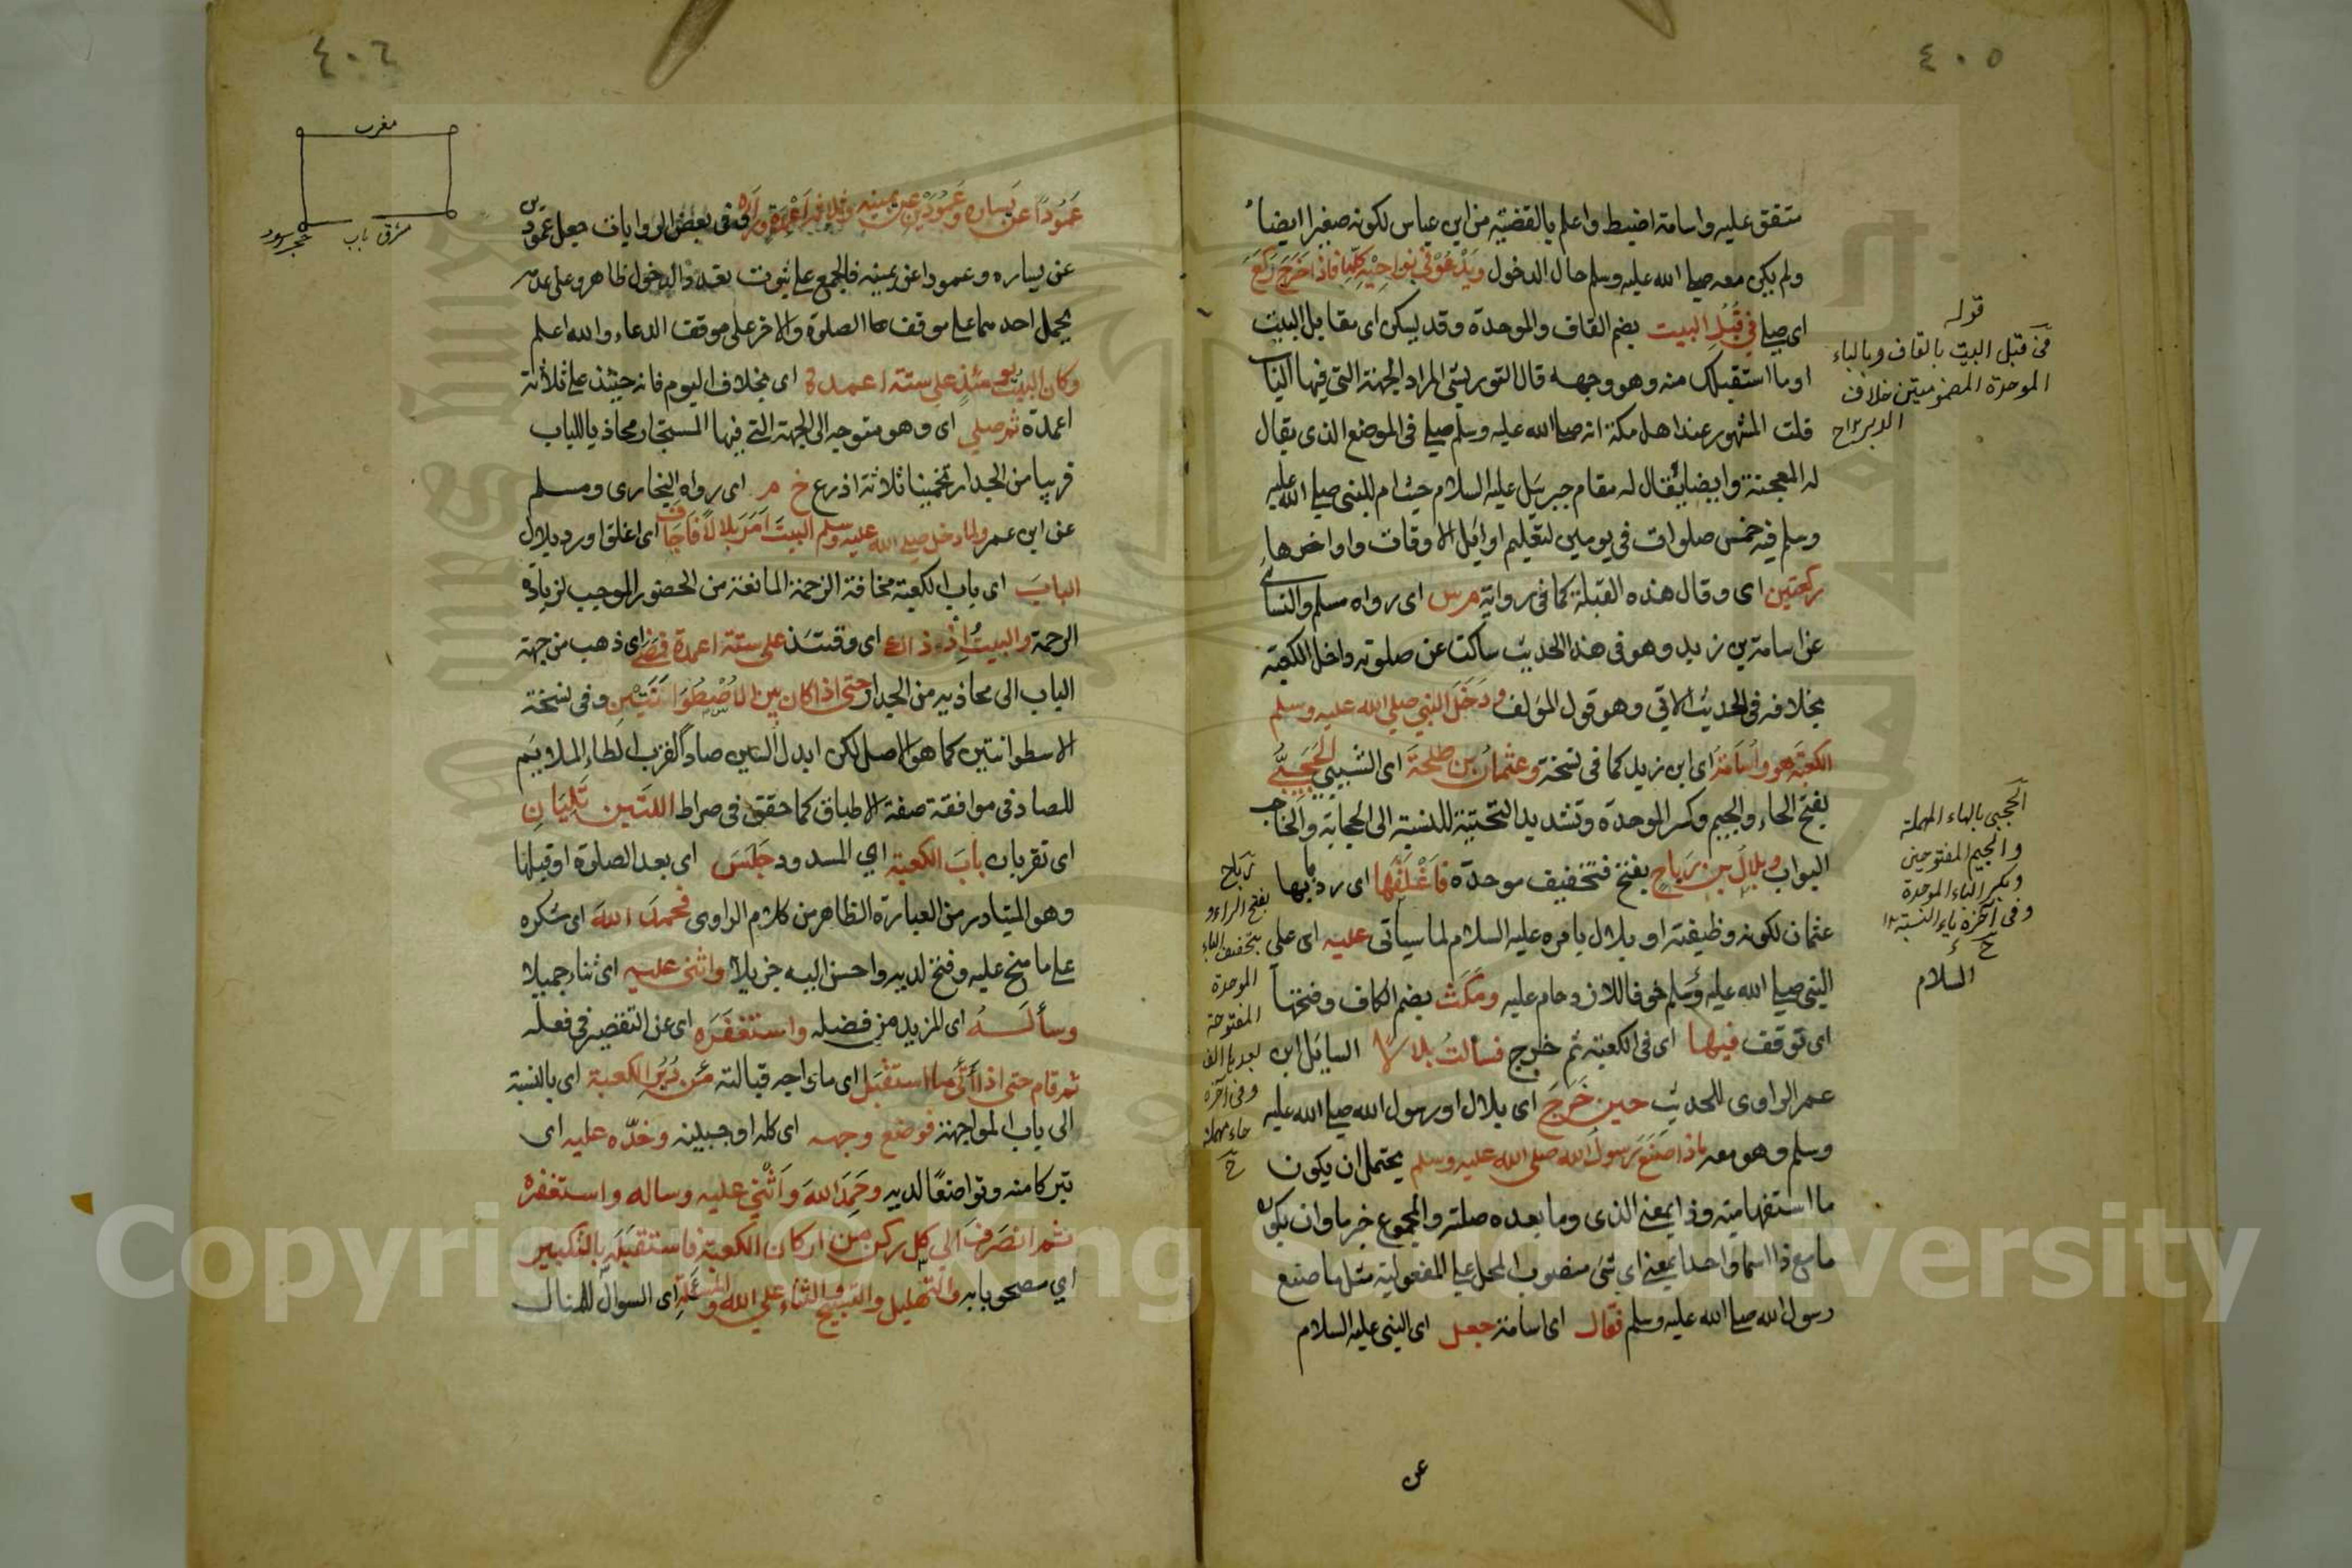 ٤٠٥
متفق عليه واسامة اضبط واعلم بالقضية من ابن عباس لكونه صغيرا ايضا
ولم يكن معه صلى الله عليه وسلم حال الدخول ويدعو في نواحيه كلها فاذا خرج ركع
اى صلى في قبل البيت بضم القاف والموحدة وقد يسكن اى مقابل البيت
اوما استقبلك منه وهو وجهه قال التوربشتى المراد الجهة التى فيها الباب
قلت المشهور عند اهل مكة انه صلى الله عليه وسلم صلى فى الموضع الذى يقال
له المعجنة وايضا يقال له مقام جبريل عليه السلام حيث ام للنبى صلى الله عليه
وسلم فيه خمس صلوات فى يومين لتعليم اوايل الاوقات واواخرها
ركعتين اى وقال هذه القبلة كما فى رواية م س اى رواه مسلم والنسائى
عن اسامة بن زيد وهو فى هذا الحديث ساكت عن صلوته داخل الكعبة
بخلافه فى الحديث الاتى وهو قول المؤلف ودخل النبي صلي الله عليه وسلم
الكعبة هو واسامة اى ابن زيد كما فى نسخة وعثمان بن طلحة اى الشيبي الحجبي
بفتح الحاء والجيم وكسر الموحدة وتشديد التحتية للنسبة الى الحجابة والحاجب
البواب وبلال بن رباح بفتح فتخفيف موحدة فاغلقها اى رد بابها
عثمان لكونه وظيفته او بلال يامره عليه السلام لما سيأتى عليه اى على
النبى صلى الله عليه وسلم خوفا للازدحام عليه ومكث بضم الكاف وفتحها
اى توقف فيها اى فى الكعبة ثم خرج فسألت بلالا السايل ابن
عمر الراوى للحديث حين خرج اى بلال او رسول الله صلى الله عليه
وسلم وهو معه ماذا صنع رسول الله صلى الله عليه وسلم يحتمل ان يكون
ما استفهامية وذا بمعنى الذى وما بعده صلته والمجموع خبر ما وان يكون
ما مع ذا اسما واحدا بمعنى اى شئ منصوب المحل على المفعولية مثل ما صنع
رسول الله صلى الله عليه وسلم فقال اى اسامة جعل اى النبى عليه السلام
عن
قوله
فى قبل البيت بالقاف وبالباء
الموحدة المضمومتين خلاف
الدبر
الحجبى بالحاء المهملة
والجيم المفتوحتين
وبكسر الباء الموحدة
وفى آخره ياء النسبة
ح
السلام
رباح
بفتح الراء و
بتخفيف الباء
الموحدة
المفتوحة
بعدها الف
وفى آخره
حاء مهملة
ح
٤٠٦
مغرب
مشرق باب
حجر سود
عمودا عن يساره وعمودين عن يمينه وثلاثة اعمدة وراه وفى بعض الروايات جعل عمودين
عن يساره وعمودا عن يمينه فالجمع على ثبوت تعدد الدخول ظاهر وعلى عدمه
يحمل احدهما على موقف الصلوة والاخر على موقف الدعاء والله اعلم
وكان البيت يومئذ على ستة اعمدة اى بخلاف اليوم فانه حينئذ على ثلاثة
اعمدة ثم صلي اى وهو متوجه الى الجهة التى فيها المستجار محاذيا للباب
قريبا من الجدار تخمينا ثلاثة اذرع خ م اى رواه البخارى ومسلم
عن ابن عمر ولما دخل صلى الله عليه وسلم البيت امر بلالا فاجاف اى اغلق او رد بلال
الباب اى باب الكعبة مخافة الزحمة المانعة من الحضور الموجب لزيادة
الرحمة والبيت اذ ذاك اى وقتئذ على ستة اعمدة فمضى اى ذهب من جهة
الباب الى محاذيه من الجدار حتى اذا كان بين الاصطوانتين وفى نسخة
الاسطوانتين كما هو الاصل لكن ابدل السين صادا لقرب الطاء الملايم
للصاد فى موافقة صفة الاطباق كما حقق فى صراط اللتين تليان
اى تقربان باب الكعبة اي المسدود جلس اى بعد الصلوة او قبلها
وهو المتبادر من العبارة الظاهر من كلام الراوى فحمد الله اى شكره
على ما منح عليه وفتح لديه واحسن اليه جزيلا واثنى عليه اى ثناء جميلا
وسأله اى المزيد من فضله واستغفره اى عن التقصير فى فعله
ثم قام حتى اذا أتى ما استقبل اى ما واجه قبالته من دبر الكعبة اى بالنسبة
الى باب المواجهة فوضع وجهه اى كله او جبينه وخده عليه اى
تبركا منه وتواضعا لديه وحمد الله واثنى عليه وساله واستغفره
ثم انصرف الي كل ركن من اركان الكعبة فاستقبله بالتكبير
اي مصحوبا به والتهليل والتسبيح والثناء علي الله والمسئلة اى السوال